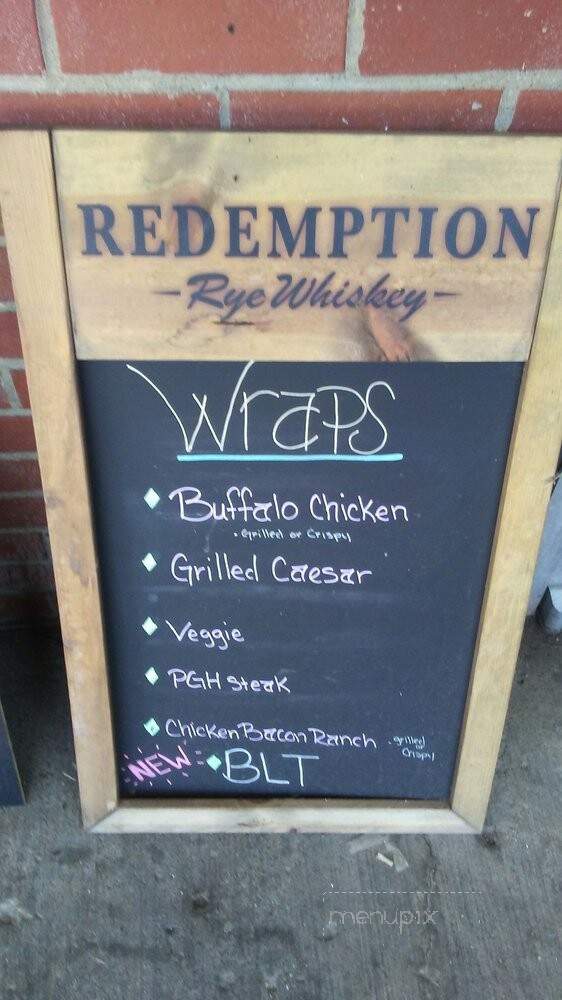 REDEMPTION
- Rye Whiskey -
Wraps
Buffalo Chicken
• Grilled or Crispy
Grilled Caesar
Veggie
PGH Steak
Chicken Bacon Ranch - grilled
or
Crispy
NEW BLT
menupix